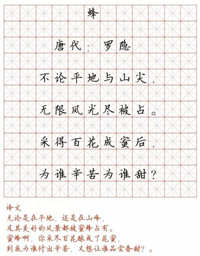 蜂
唐代：罗隐
不论平地与山尖，
无限风光尽被占。
采得百花成蜜后，
为谁辛苦为谁甜？
译文
无论是在平地，还是在山峰，
及其美好的风景都被蜜蜂占有。
蜜蜂啊，你采尽百花酿成了花蜜，
到底为谁付出辛苦，又想让谁品尝香甜？。